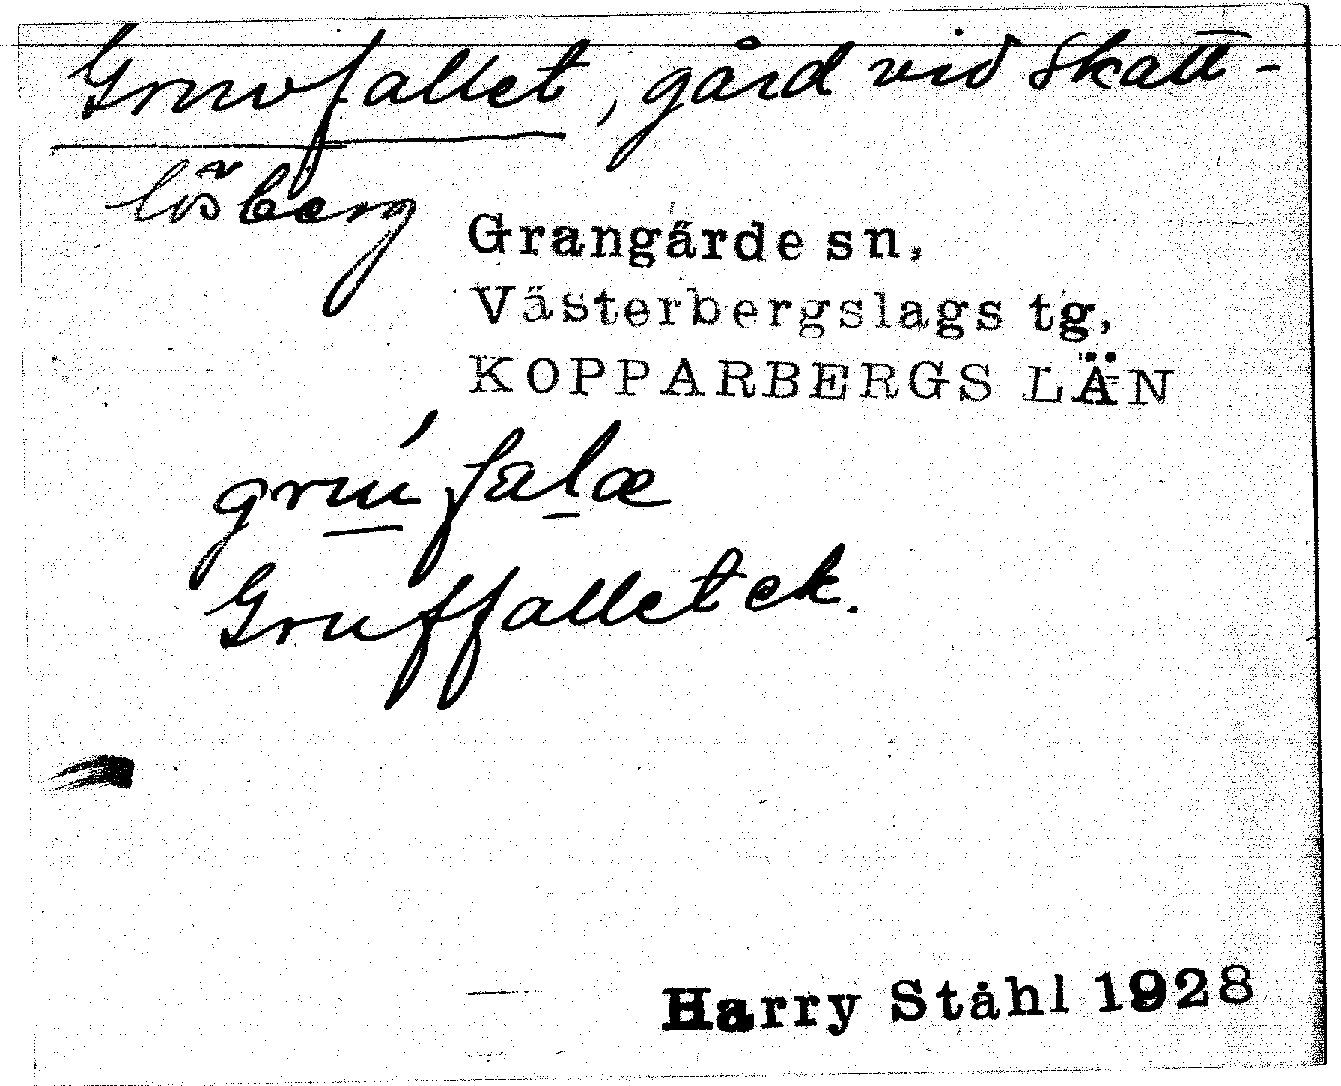 Gruvfallet, gård vid Skatt-
lösberg
Grangärde sn,
Västerbergslags tg,
KOPPARBERGS LÄN
Gruffallet ek.
Harry Ståhl 1928